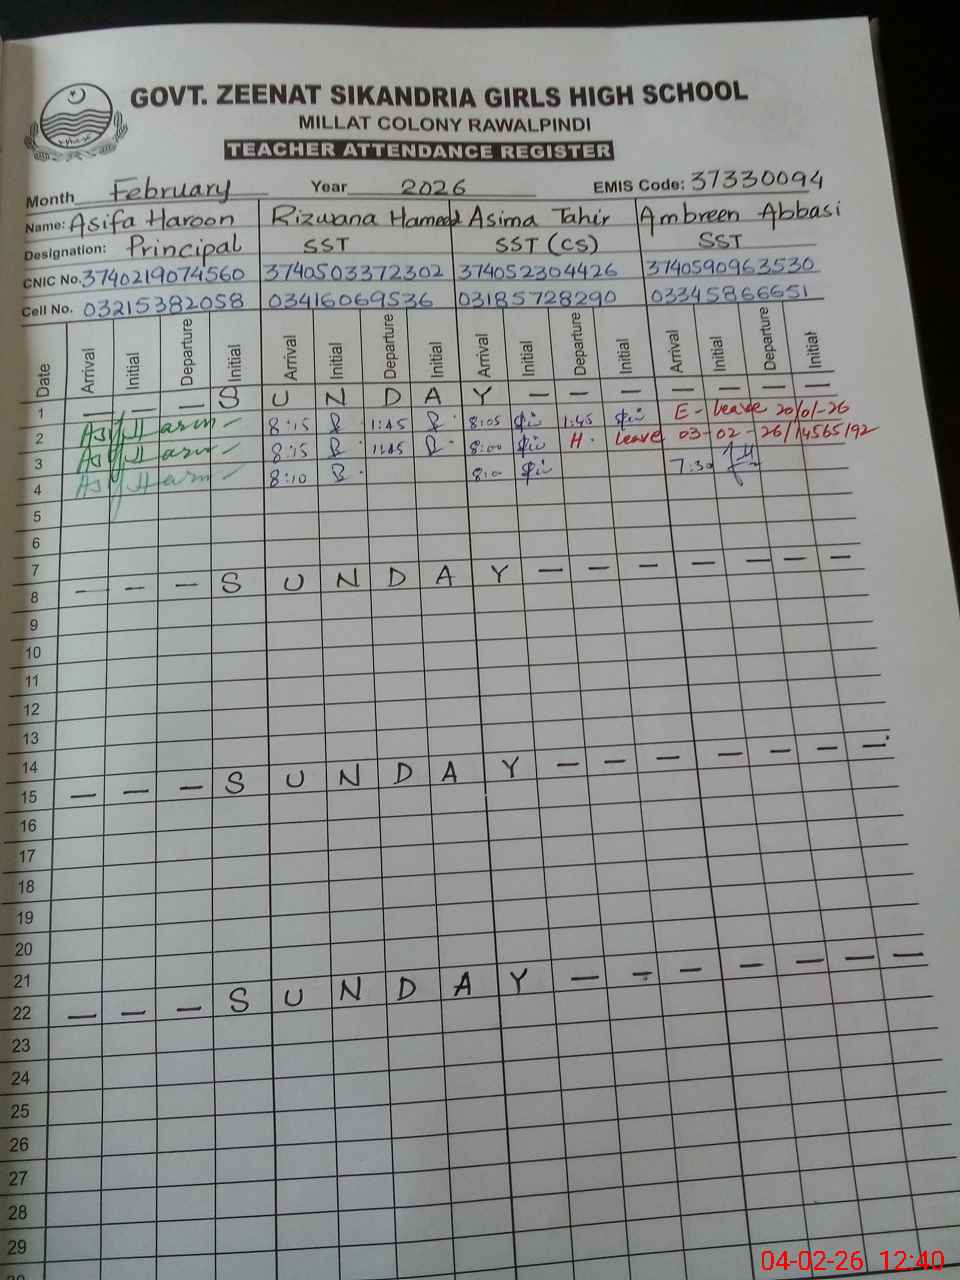 GOVT. ZEENAT SIKANDRIA GIRLS HIGH SCHOOL
MILLAT COLONY RAWALPINDI
TEACHER ATTENDANCE REGISTER
Month February Year 2026 EMIS Code: 37330094
Name: Asifa Haroon Rizwana Hameed Asima Tahir Ambreen Abbasi
Designation: Principal SST SST (CS) SST
CNIC No. 3740219074560 3740503372302 374052304426 3740590963530
Cell No. 03215382058 03416069536 03185728290 03345866651
Date Arrival Initial Departure Initial Arrival Initial Departure Initial Arrival Initial Departure Initial Arrival Initial Departure Initial
1 — — — S U N D A Y — — — — — — —
2 8:15 1:45 8:05 1:45 E - Leave 20/01-26
3 8:15 1:45 8:00 H. Leave 03-02-26/14565192
4 8:10 8:00 7:30
5
6
7
8 — — — S U N D A Y — — — — — — —
9
10
11
12
13
14
15 — — — S U N D A Y — — — — — — —
16
17
18
19
20
21
22 — — — S U N D A Y — — — — — — —
23
24
25
26
27
28
29
04-02-26 12:40